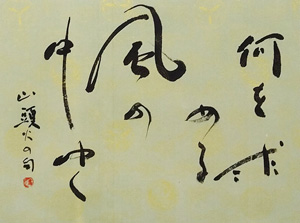 何を求
める
風の
中ゆく
山頭火の句